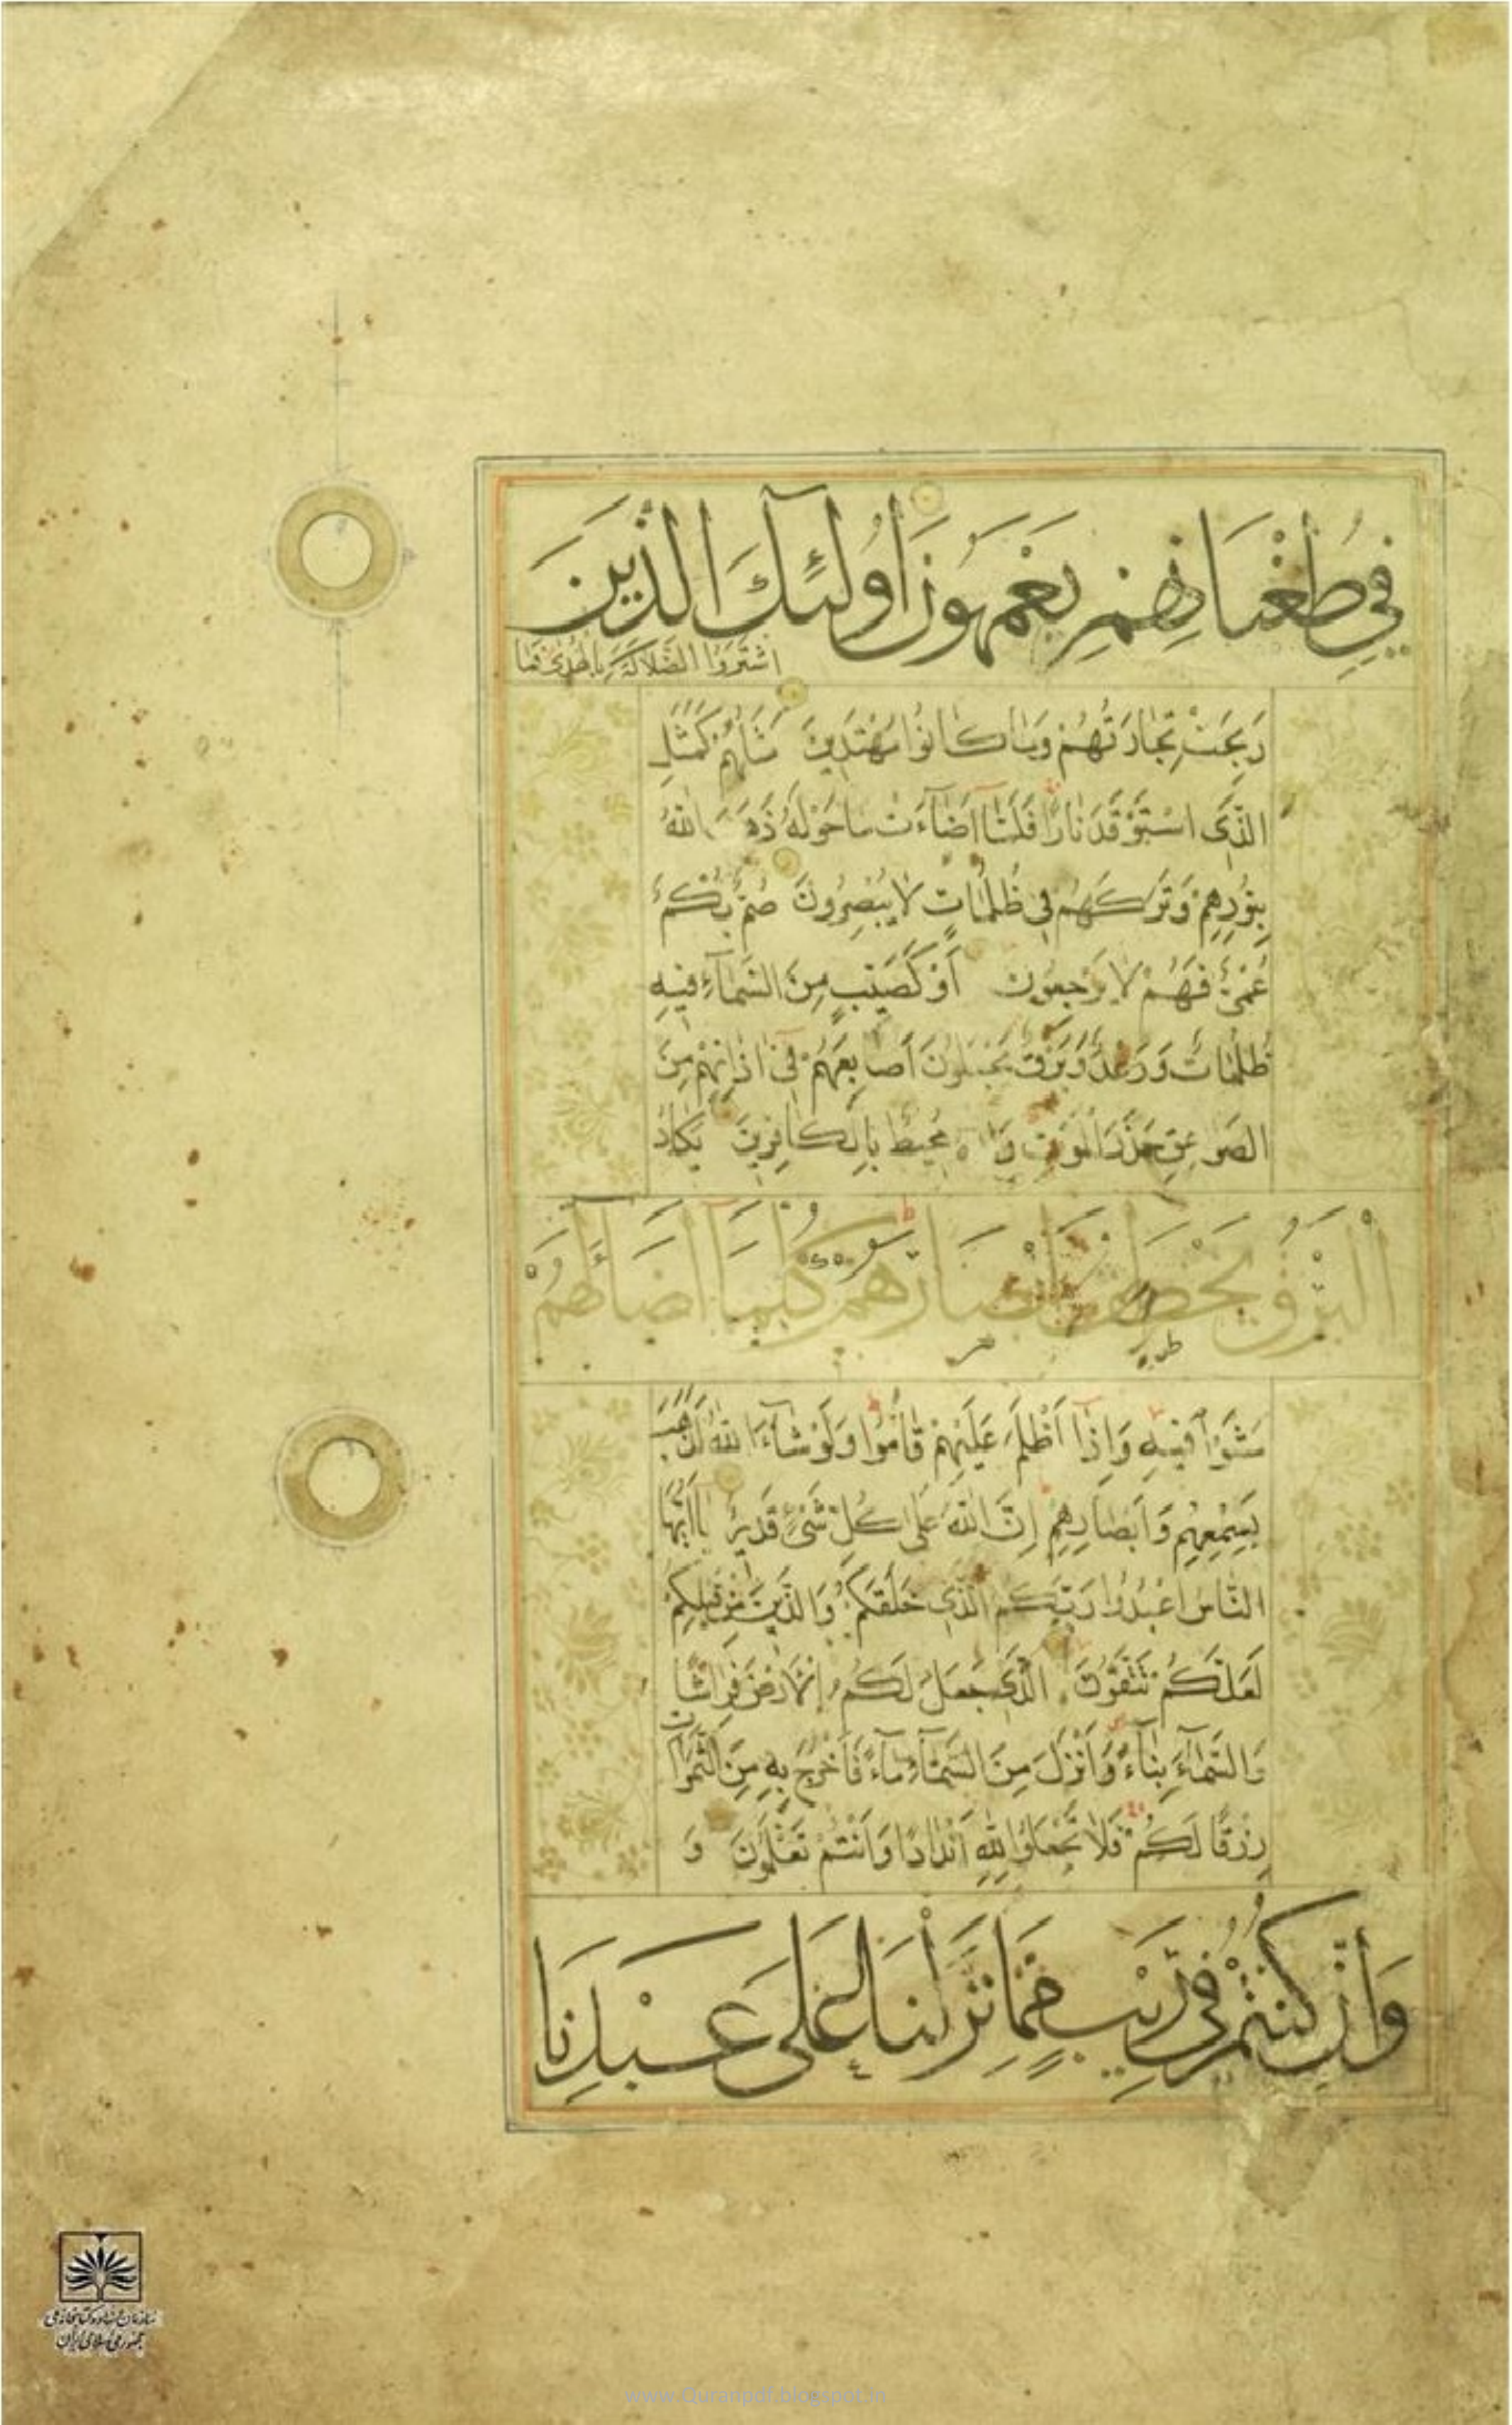 فِي طُغْيَانِهِمْ يَعْمَهُونَ أُولَٰئِكَ الَّذِينَ
اشْتَرَوُا الضَّلَالَةَ بِالْهُدَىٰ فَمَا
رَبِحَتْ تِجَارَتُهُمْ وَمَا كَانُوا مُهْتَدِينَ مَثَلُهُمْ كَمَثَلِ
الَّذِي اسْتَوْقَدَ نَارًا فَلَمَّا أَضَاءَتْ مَا حَوْلَهُ ذَهَبَ اللَّهُ
بِنُورِهِمْ وَتَرَكَهُمْ فِي ظُلُمَاتٍ لَا يُبْصِرُونَ صُمٌّ بُكْمٌ
عُمْيٌ فَهُمْ لَا يَرْجِعُونَ أَوْ كَصَيِّبٍ مِنَ السَّمَاءِ فِيهِ
ظُلُمَاتٌ وَرَعْدٌ وَبَرْقٌ يَجْعَلُونَ أَصَابِعَهُمْ فِي آذَانِهِمْ مِنَ
الصَّوَاعِقِ حَذَرَ الْمَوْتِ مُحِيطٌ بِالْكَافِرِينَ يَكَادُ
الْبَرْقُ يَخْطَفُ أَبْصَارَهُمْ كُلَّمَا أَضَاءَ لَهُمْ
مَشَوْا فِيهِ وَإِذَا أَظْلَمَ عَلَيْهِمْ قَامُوا وَلَوْ شَاءَ اللَّهُ لَذَهَبَ
بِسَمْعِهِمْ وَأَبْصَارِهِمْ إِنَّ اللَّهَ عَلَىٰ كُلِّ شَيْءٍ قَدِيرٌ يَا أَيُّهَا
النَّاسُ اعْبُدُوا رَبَّكُمُ الَّذِي خَلَقَكُمْ وَالَّذِينَ مِنْ قَبْلِكُمْ
لَعَلَّكُمْ تَتَّقُونَ الَّذِي جَعَلَ لَكُمُ الْأَرْضَ فِرَاشًا
وَالسَّمَاءَ بِنَاءً وَأَنْزَلَ مِنَ السَّمَاءِ مَاءً فَأَخْرَجَ بِهِ مِنَ الثَّمَرَاتِ
رِزْقًا لَكُمْ فَلَا تَجْعَلُوا لِلَّهِ أَنْدَادًا وَأَنْتُمْ تَعْلَمُونَ وَ
وَإِنْ كُنْتُمْ فِي رَيْبٍ مِمَّا نَزَّلْنَا عَلَىٰ عَبْدِنَا
سازمان اسناد و کتابخانه ملی
جمهوری اسلامی ایران
www.Quranpdf.blogspot.in